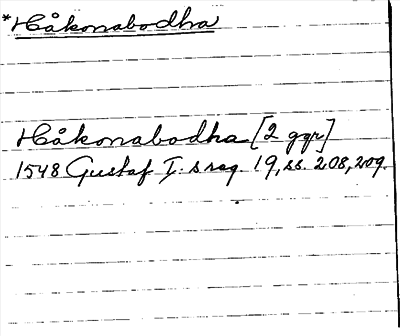 *Håkonabodha
Håkonabodha [2 ggr]
1548 Gustaf I:s reg. 19, ss. 208, 209.